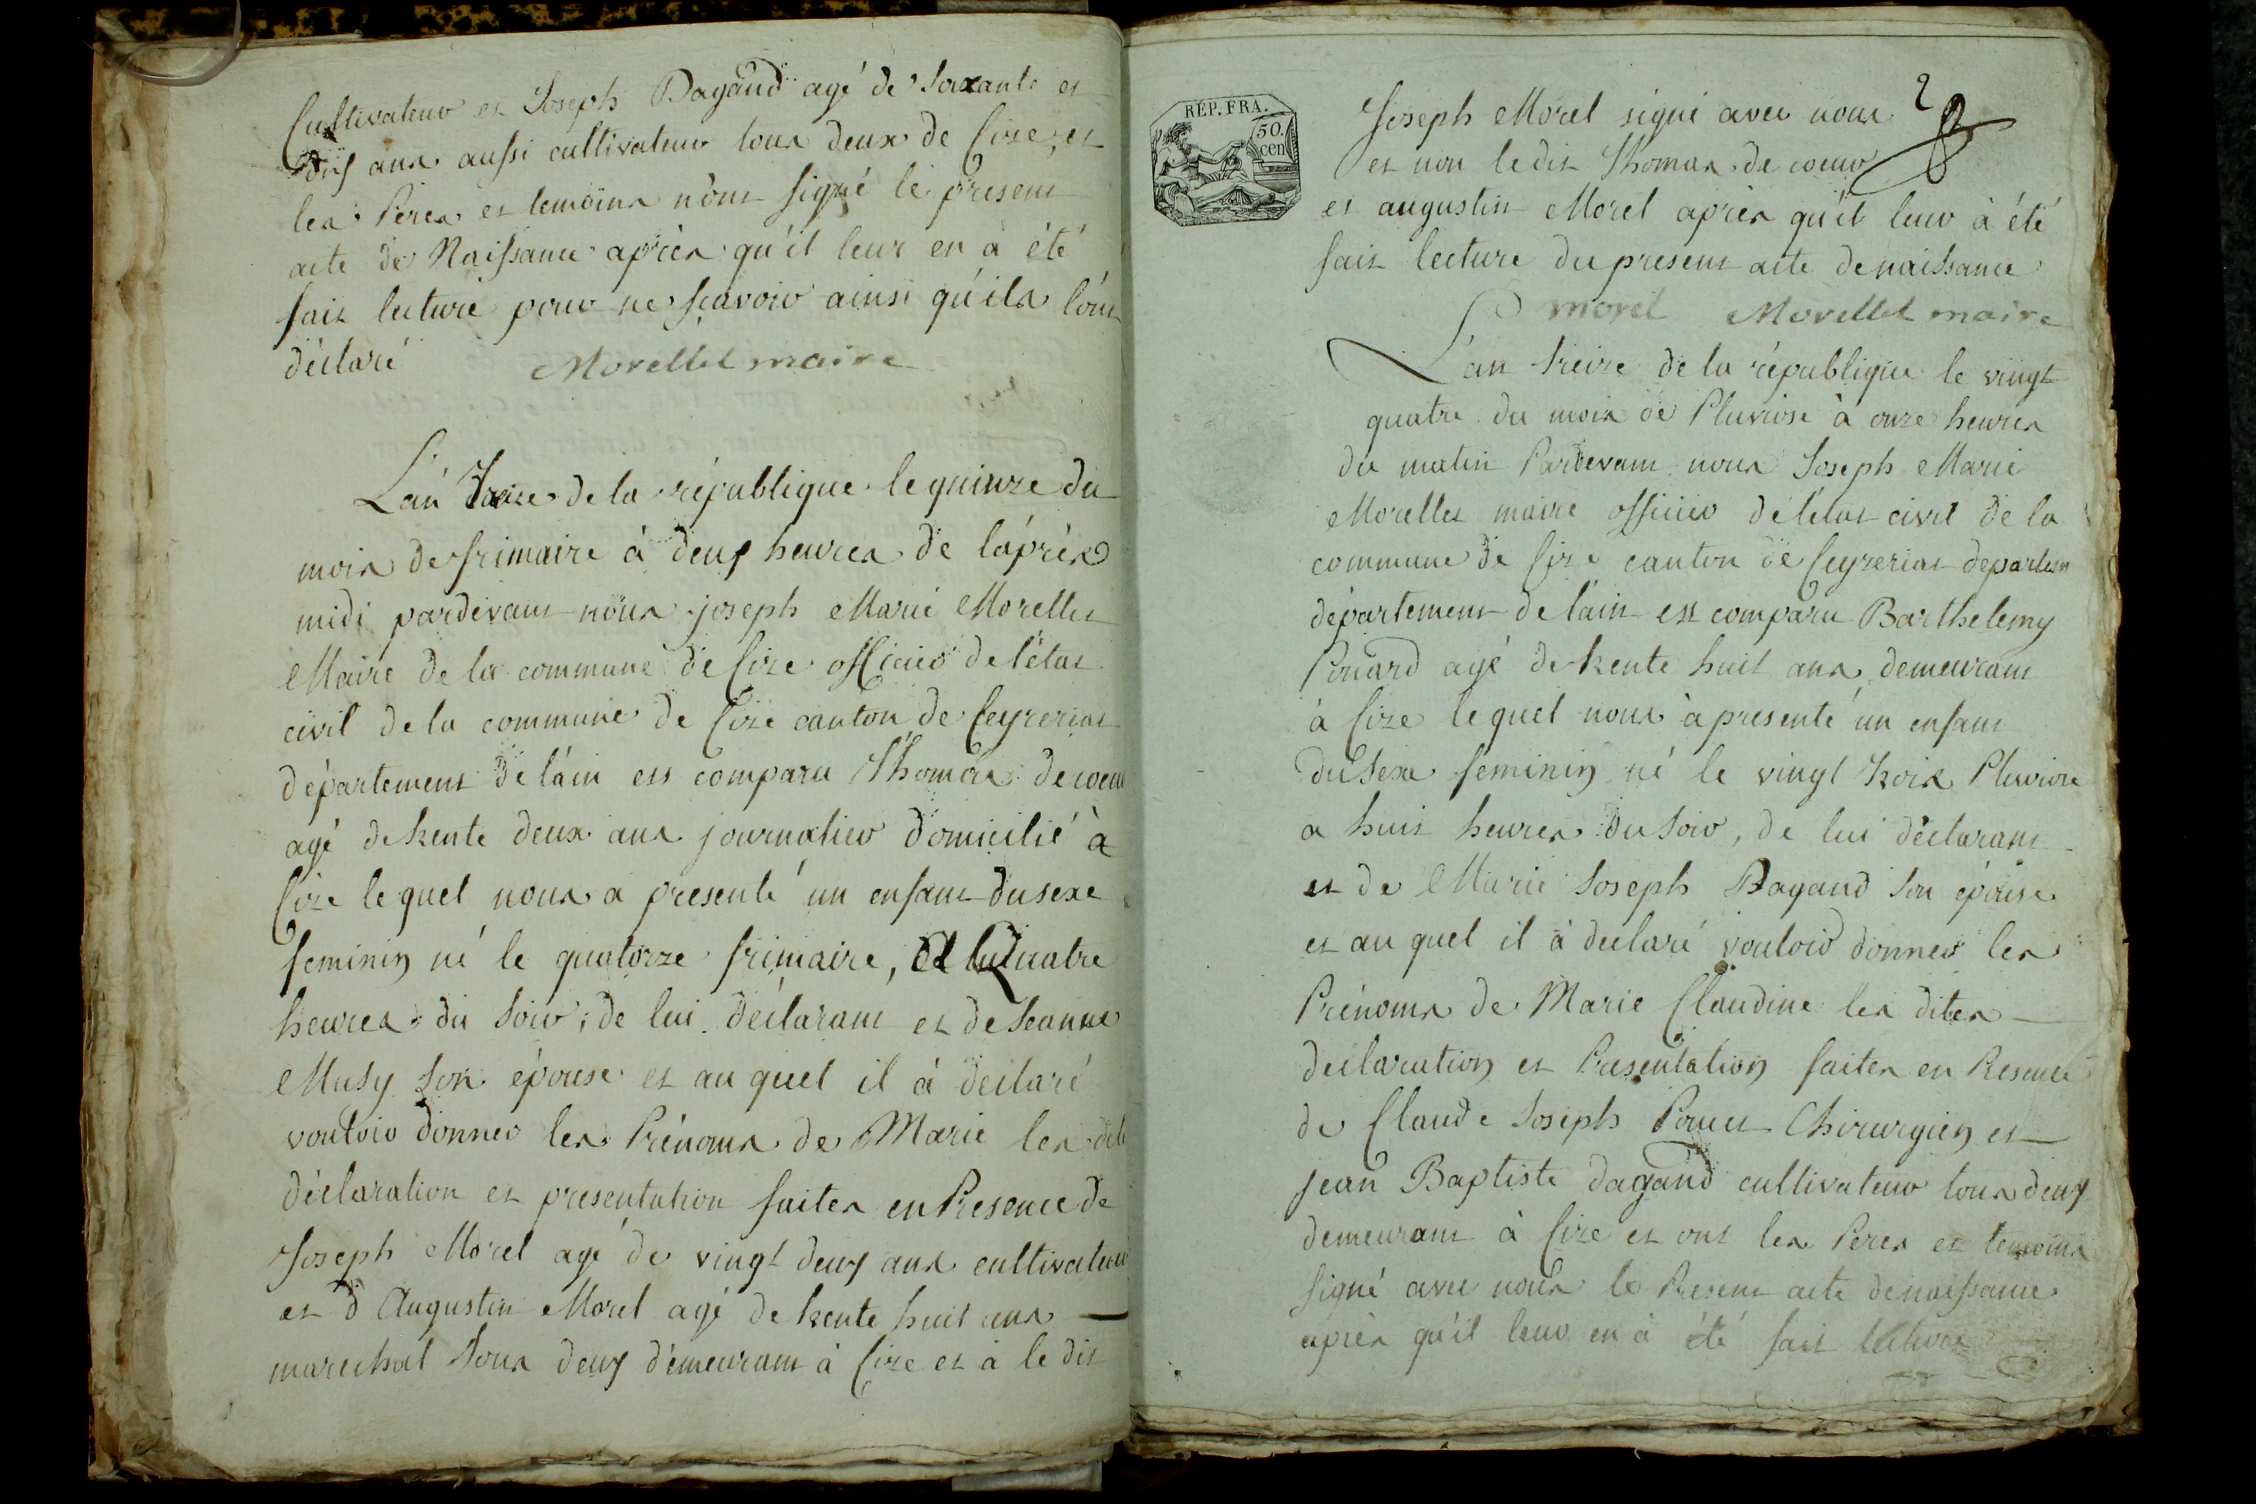 Cultivateur et Joseph Dagand agé de Soixante et
dix ans aussi cultivateur tous deux de Cize, et
les Peres et temoins n'ont signé le present
acte de Naissance après qu'il leur en à été
fait lecture pour ne sçavoir ainsi qu'ils l'ont
déclaré Morellet maire
L'an Treize de la république le quinze du
mois de frimaire à deux heures de l'après
midi pardevant nous joseph Marie Morellet
Maire de la commune de Cize officier de l'état
civil de la commune de Cize canton de Ceyzeriat
département de l'ain est comparu Thomas decoeur
agé de trente deux ans journalier domicilié à
Cize lequel nous a presenté un enfant du sexe
feminin né le quatorze frimaire, quatre
heures du soir, de lui déclarant et de Jeanne
Musy son épouse et au quel il à déclaré
vouloir donner les Prénoms de Marie les dite
déclaration et presentation faites en Presence de
Joseph Morel agé de vingt deux ans cultivateur
et d'Augustin Morel agé de trente huit ans
marechal Tous deux demeurant à Cize et à le dit
2
RÉP. FRA.
50.
cen
Joseph Morel signé avec nous
et non le dit Thomas de coeur
et augustin Morel après qu'il leur à été
fait lecture du present acte de naissance
morel Morellet maire
L'an treize de la république le vingt
quatre du mois de Pluviose à onze heures
du matin Pardevant nous Joseph Marie
Morellet maire officier de l'état civil de la
commune de Cize canton de Ceyzeriat departem
département de l'ain est comparu Barthelemy
agé de trente huit ans demeurant
à Cize lequel nous à presenté un enfant
du sexe feminin né le vingt trois Pluviose
a huit heures du soir, de lui déclarant
et de Marie Joseph Dagand son épouse
et au quel il à declaré vouloir donner les
Prénoms de Marie Claudine les dites
declaration et Presentation faites en Presence
de Claude Joseph Chirurgien et
jean Baptiste dagand cultivateur tous deux
demeurant à Cize et ont les Peres et temoins
signé avec nous le Present acte de naissance
après qu'il leur en à été fait lecture